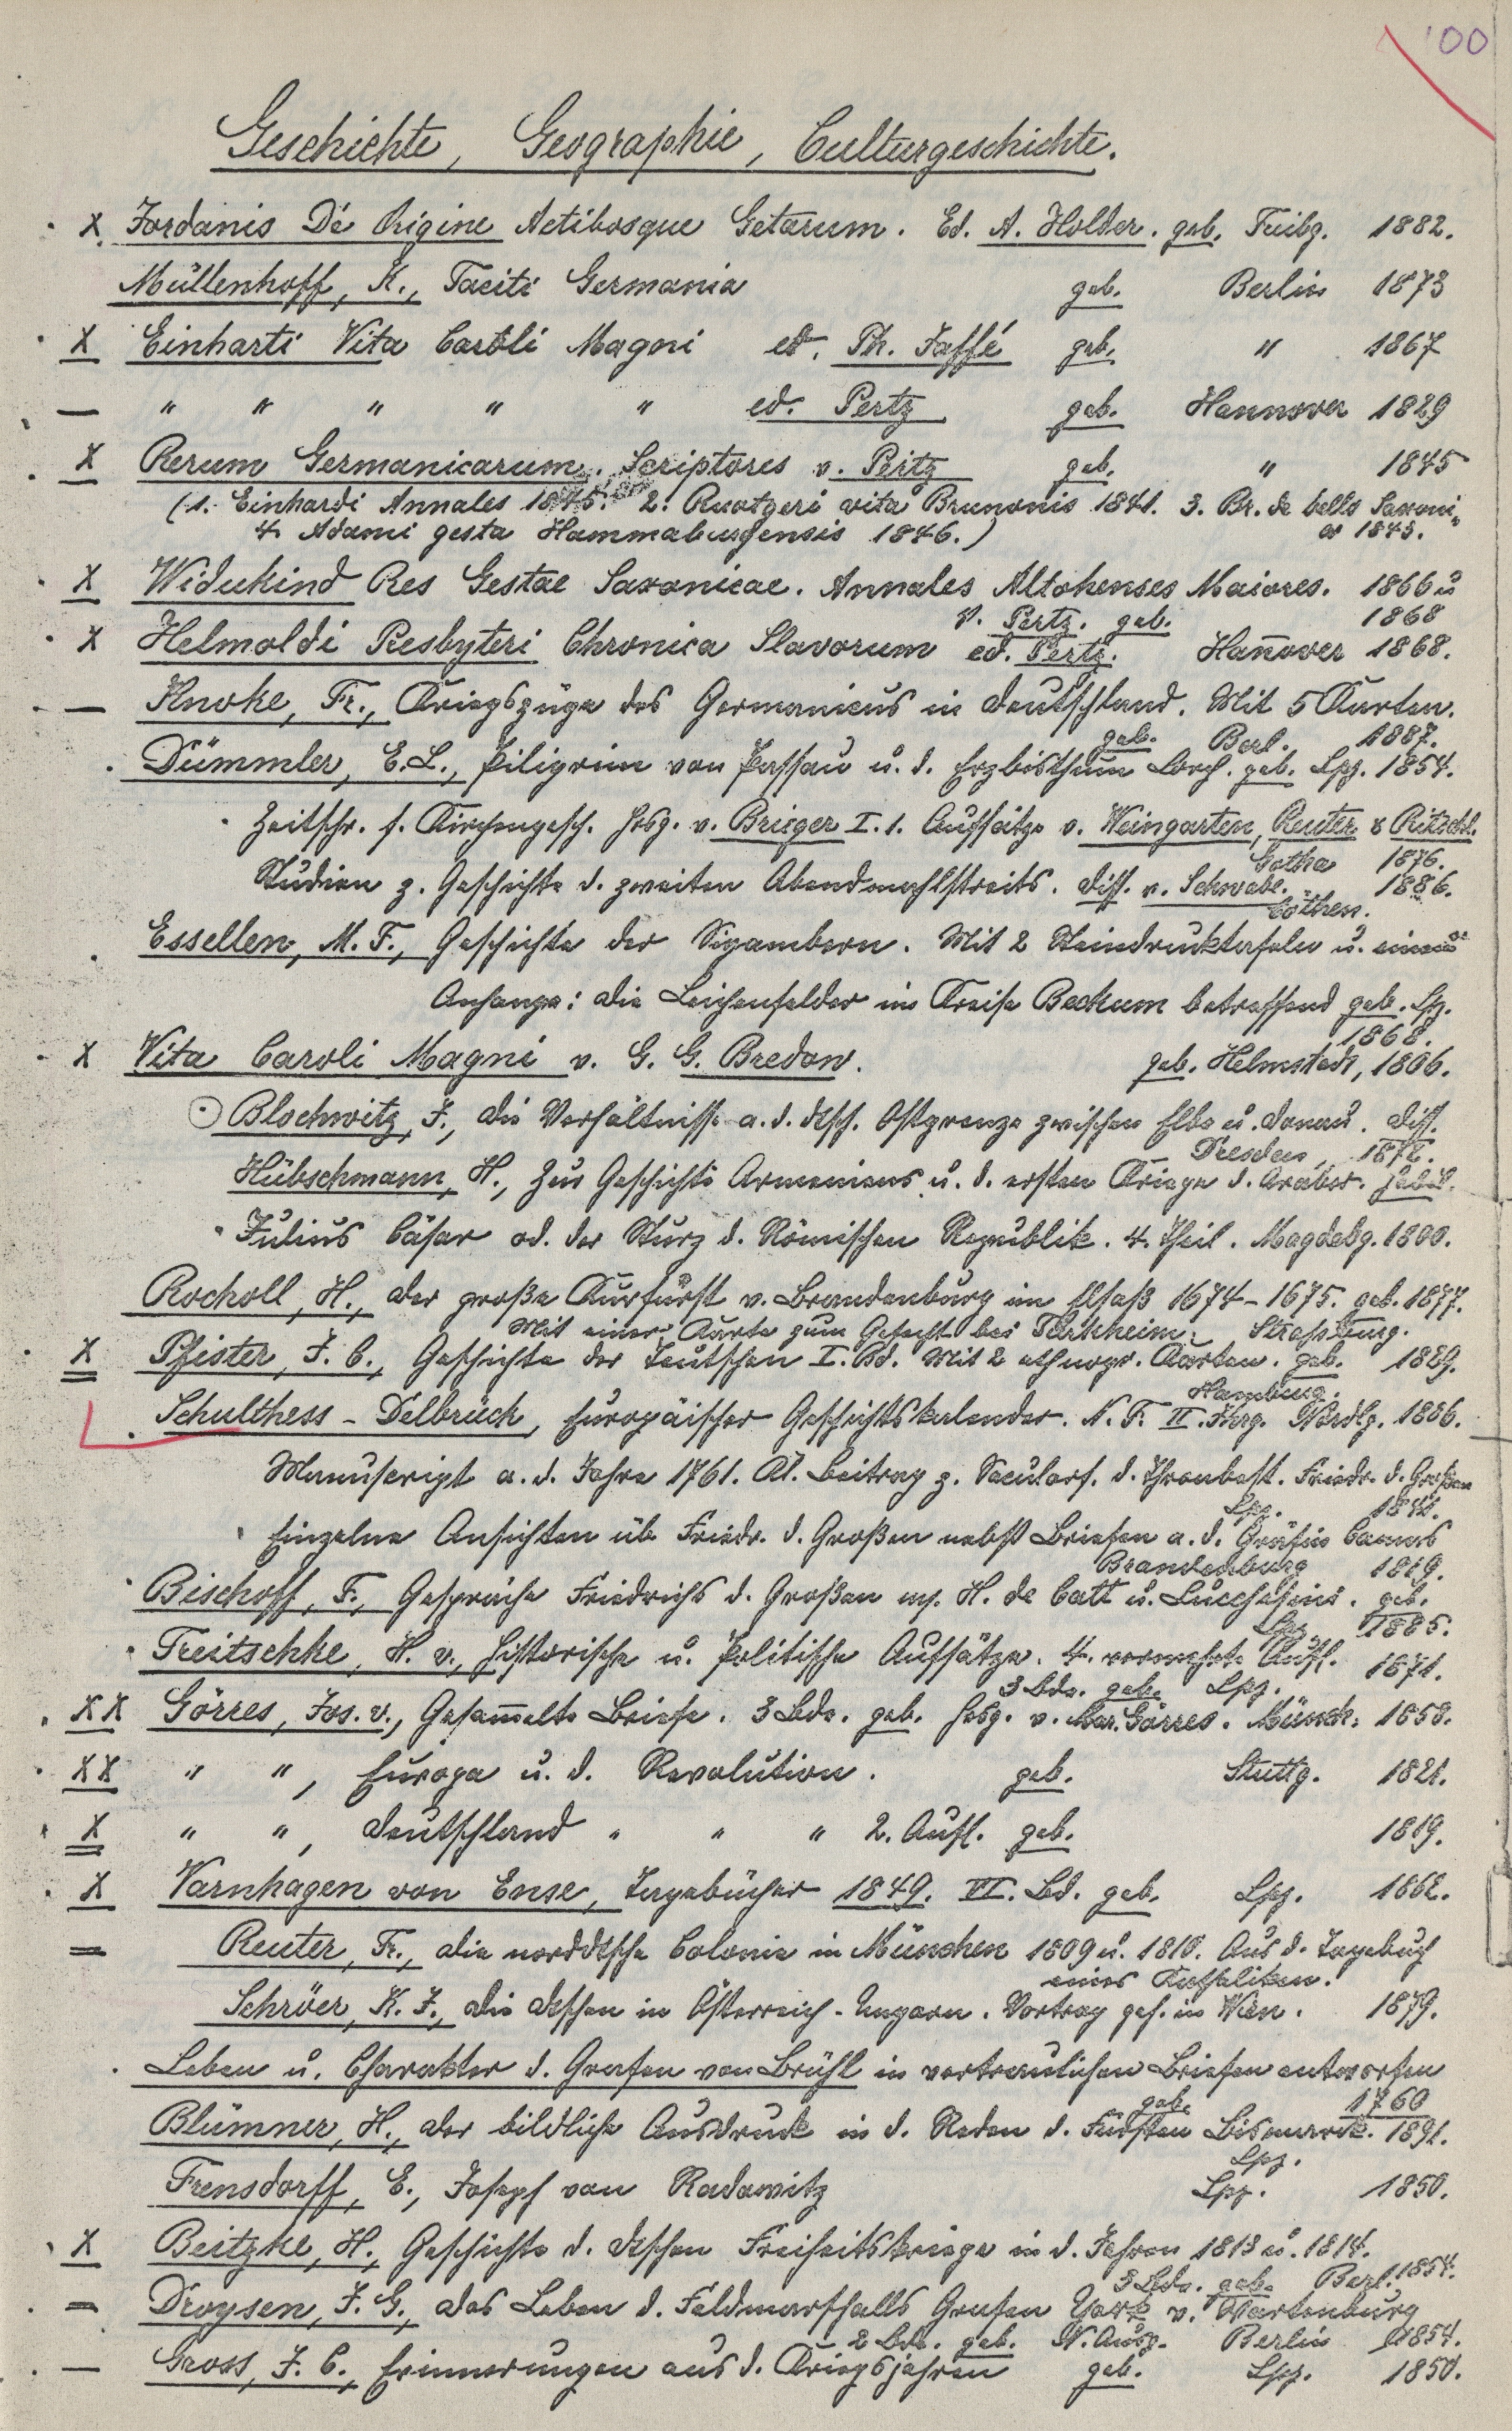 '00
Geschichte, Geographie, Culturgeschichte.
X Jordanis De Origine Actibosque Getarum. Ed. A. Holder. geb. Freibg. 1882.
Müllenhoff, K., Taciti Germania geb. Berlin 1873
X Einharti Vita Caroli Magni ed. Ph. Jaffé geb. " 1867
— " " " " " ed. Pertz geb. Hannover 1829
X Rerum Germanicarum Scriptores v. Pertz geb. " 1845
(1. Einhardi Annales 1845. 2. Ruotgeri vita Brunonis 1841. 3. Br. de bello Saxoni-
4. Adami gesta Hammaburgensis 1846.) co 1843.
X Widukind Res Gestae Saxonicae. Annales Altahenses Maiores. 1866 u
v. Pertz. geb. 1868
X Helmoldi Presbyteri Chronica Slavorum ed. Pertz. Han̄over 1868.
— Knoke, Fr., Kriegszüge des Germanicus in Deutschland. Mit 5 Karten.
geb. Berl. 1887.
Dümmler, E. L., Piligrim von Passau u. d. Erzbisthum Lorch. geb. Lpz. 1854.
Zeitschr. f. Kirchengesch. hrsg. v. Brieger I. 1. Aufsätze v. Weingarten, Reuter & Ritschl.
Gotha 1876.
Studien z. Geschichte d. zweiten Abendmahlstreits. Diss. v. Schwabe. 1886.
Cöthen.
Essellen, M. F., Geschichte der Sigambern. Mit 2 Steindrucktafeln u. einem
Anhange: die Leichenfelder im Kreise Beckum betreffend geb. Lpz.
1868.
X Vita Caroli Magni v. G. G. Bredow. geb. Helmstadt, 1806.
Blochwitz, J., Die Verhältnisse a. d. dtsch. Ostgrenze zwischen Elbe u. Donau. Diss.
Dresden, 1872.
Hübschmann, H., Zur Geschichte Armeniens u. d. ersten Kriege d. Araber.
Julius Cäsar od. der Sturz d. Römischen Republik. 4. Theil. Magdebg. 1800.
Rocholl, H., Der große Kurfürst v. Brandenburg im Elsaß 1674-1675. geb. 1877.
Mit einer Karte zum Gefecht bei Türkheim. Straßburg.
X Pfister, J. C., Geschichte der Teutschen I. Bd. Mit 2 ethnogr. Karten. geb. 1829.
Hamburg.
Schulthess - Delbrück, Europäischer Geschichtskalender. N. F. II. Jhrg. Nördlg. 1886.
Manuscript a. d. Jahre 1761. Kl. Beitrag z. Secularf. d. Thronbest. Friedr. d. Großen
Lpz. 1842.
Einzelne Ansichten üb. Friedr. d. Großen nebst Briefen a. d. Gräfin Camas
Brandenburg 1819.
Bischoff, F., Gespräche Friedrichs d. Großen m. H. de Catt u. Lucchesini. geb.
Lpz. 1885.
Treitschke, H. v., Historische u. Politische Aufsätze. 4. vermehrte Aufl. 1871.
3 Bde. geb. Lpz.
XX Görres, Jos. v., Gesam̄elte Briefe. 3 Bde. geb. hrsg. v. Mar. Görres. Münch. 1858.
XX " ", Europa u. d. Revolution. geb. Stuttg. 1821.
X " ", Deutschland " " " 2. Aufl. geb. 1819.
X Varnhagen von Ense, Tagebücher 1849. VI. Bd. geb. Lpz. 1862.
= Reuter, Fr., Die norddtsche Colonie in München 1809 u. 1810. Aus d. Tagebuch
eines Katholiken.
Schröer, K. J., Die Dtschen in Österreich-Ungarn. Vortrag geh. in Wien. 1879.
Leben u. Charakter d. Grafen von Brühl in vertraulichen Briefen entworfen
geb. 1760
Blümner, H., Der bildliche Ausdruck in d. Reden d. Fürsten Bismarck. 1891.
Lpz.
Frensdorff, E., Joseph von Radowitz Lpz. 1850.
X Beitzke, H., Geschichte d. dtschen Freiheitskriege in d. Jahren 1813 u. 1814.
3 Bde. geb. Berl. 1854.
= Droysen, J. G., Das Leben d. Feldmarschalls Grafen York v. Wartenburg
2 Bde. geb. N. Ausg. Berlin 1854.
— Gross, J. C., Erinnerungen aus d. Kriegsjahren geb. Lpz. 1850.